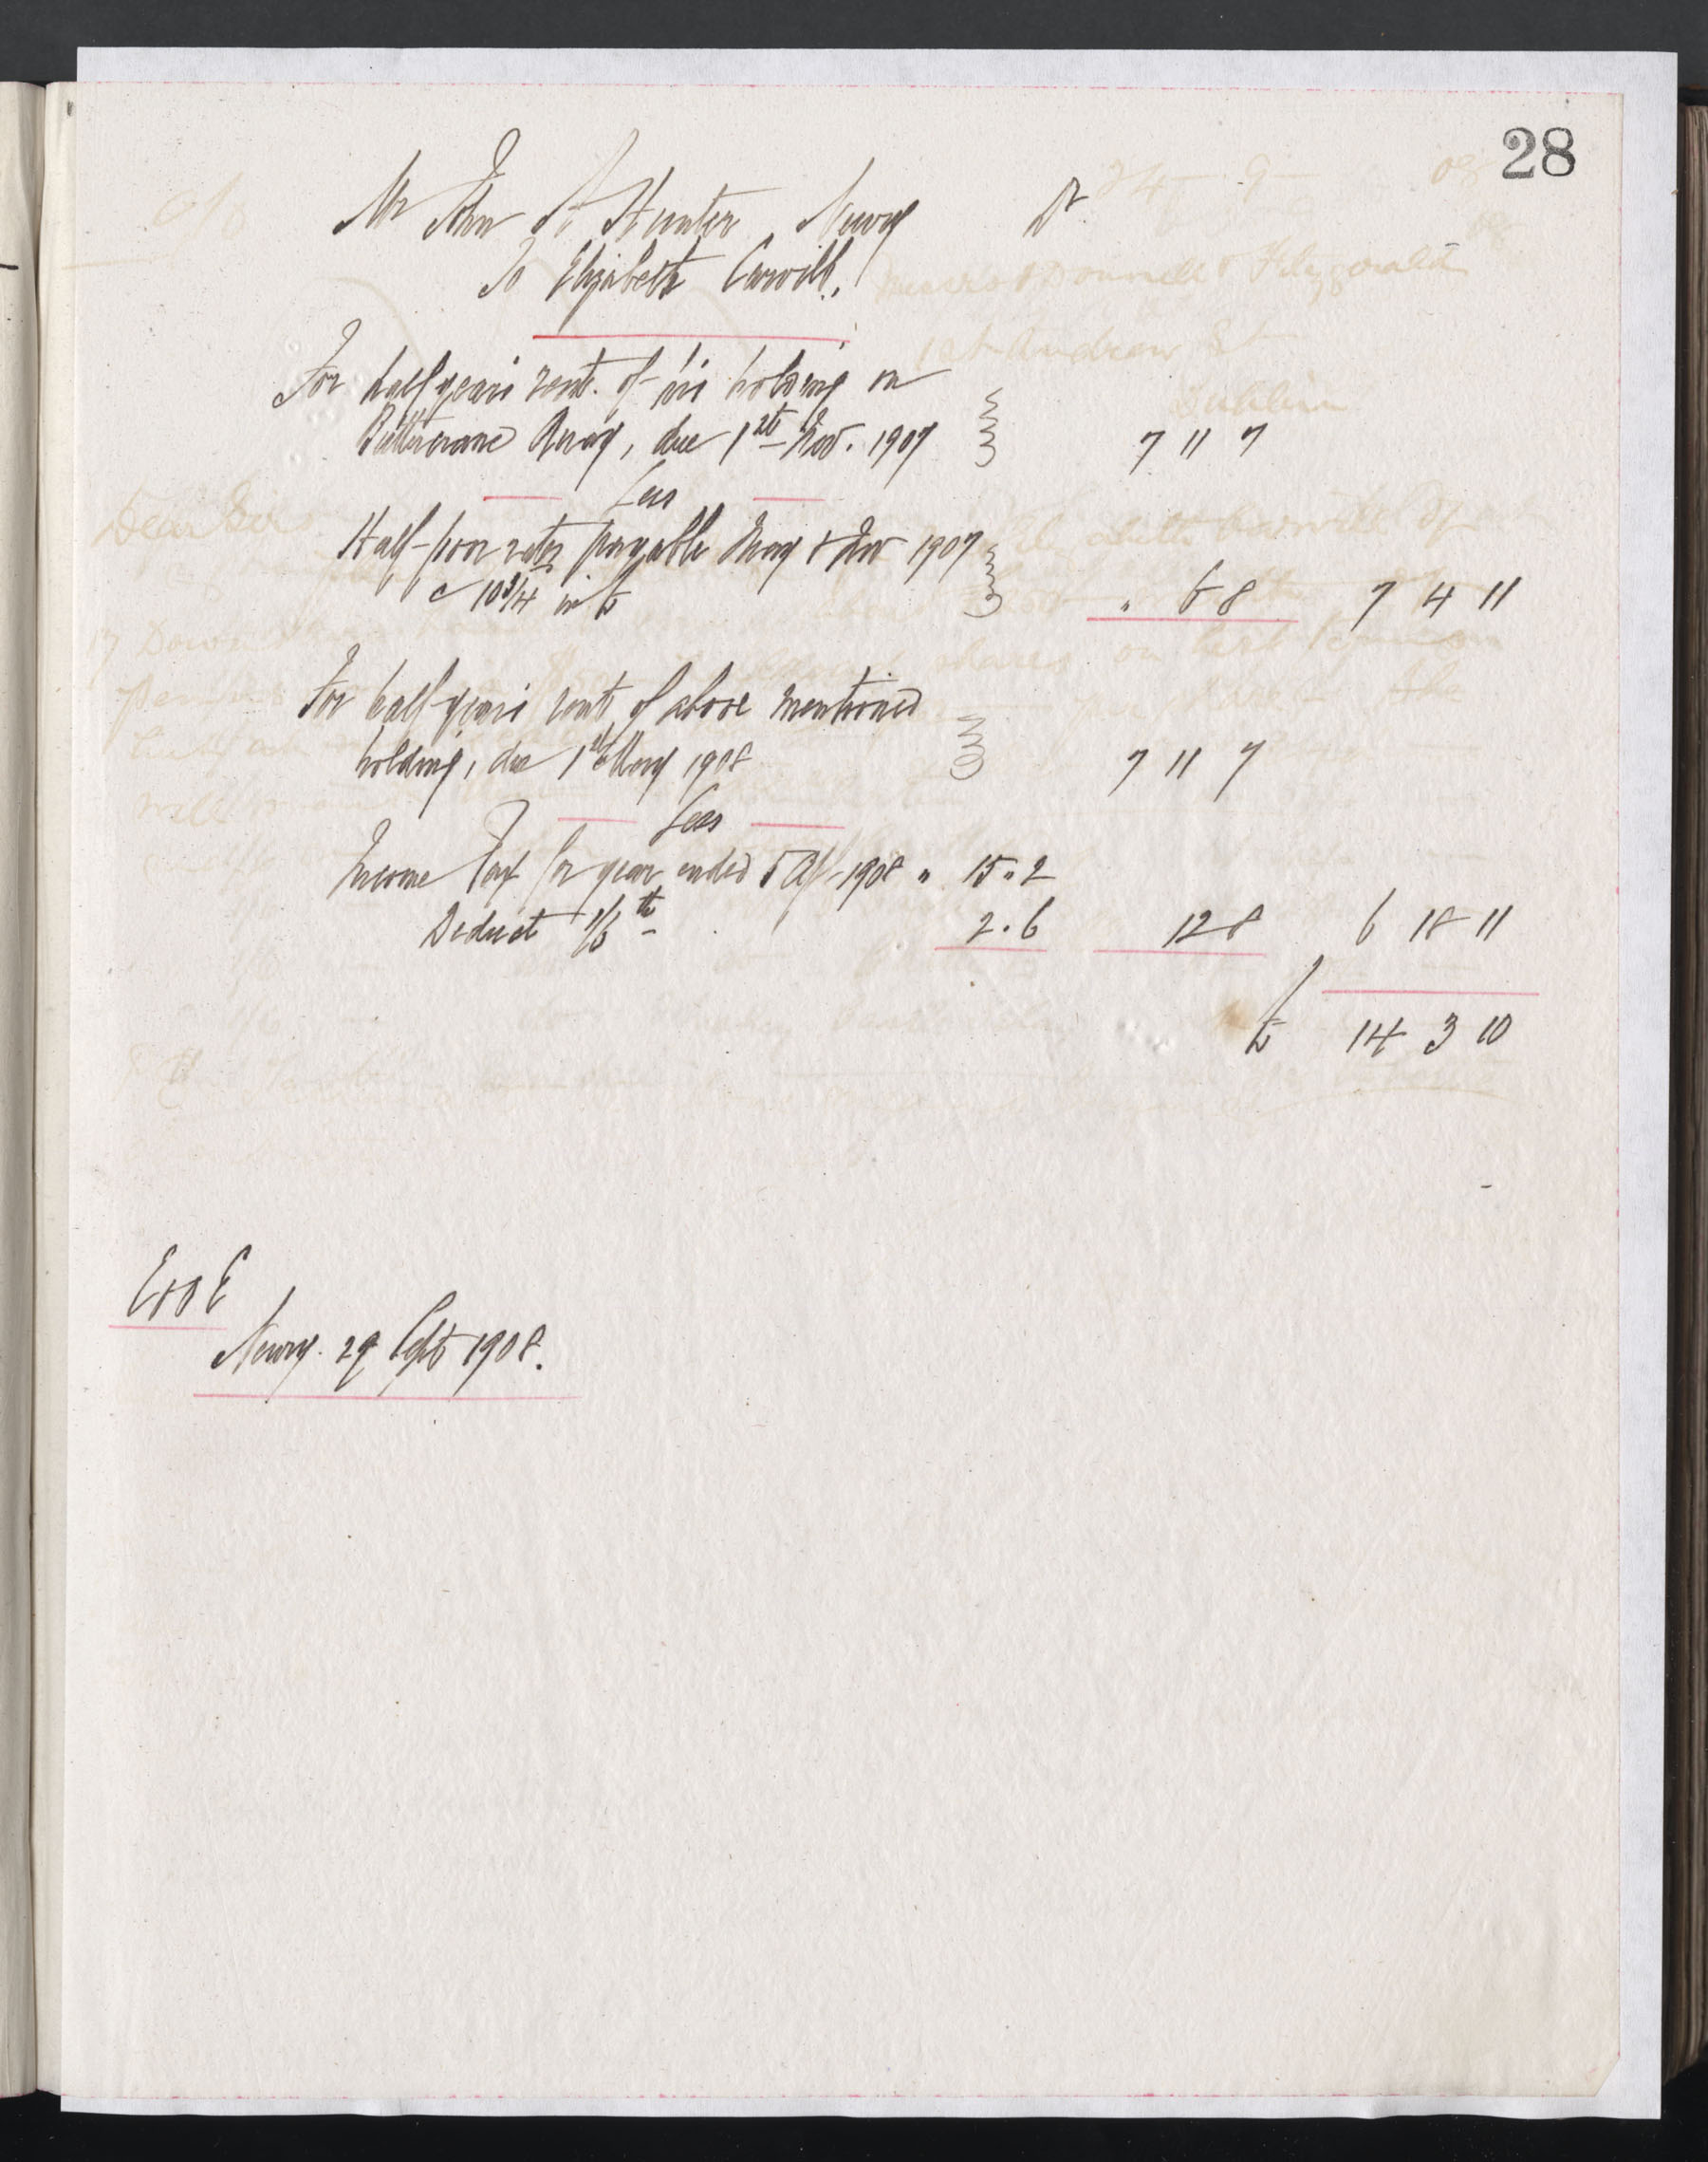 28
Mr John A Hunter Newry Dr
To Elizabeth Carvill,
For half years rent of his holding on
Buttercrane Quay, due 1st Nov. 1907 7 11 7
Less
Half-poor rates payable May & Nov 1907
@ 10 3/4 in £ " 6 8 7 4 11
For half years rent of above mentioned
holding, due 1st May 1908 7 11 7
Less
Income Tax for year ended 5 Ap 1908 " 15 " 2
Deduct 1/6th 2 . 6 12 8 6 18 11
£ 14 3 10
E & O E
Newry. 29 Sept 1908.